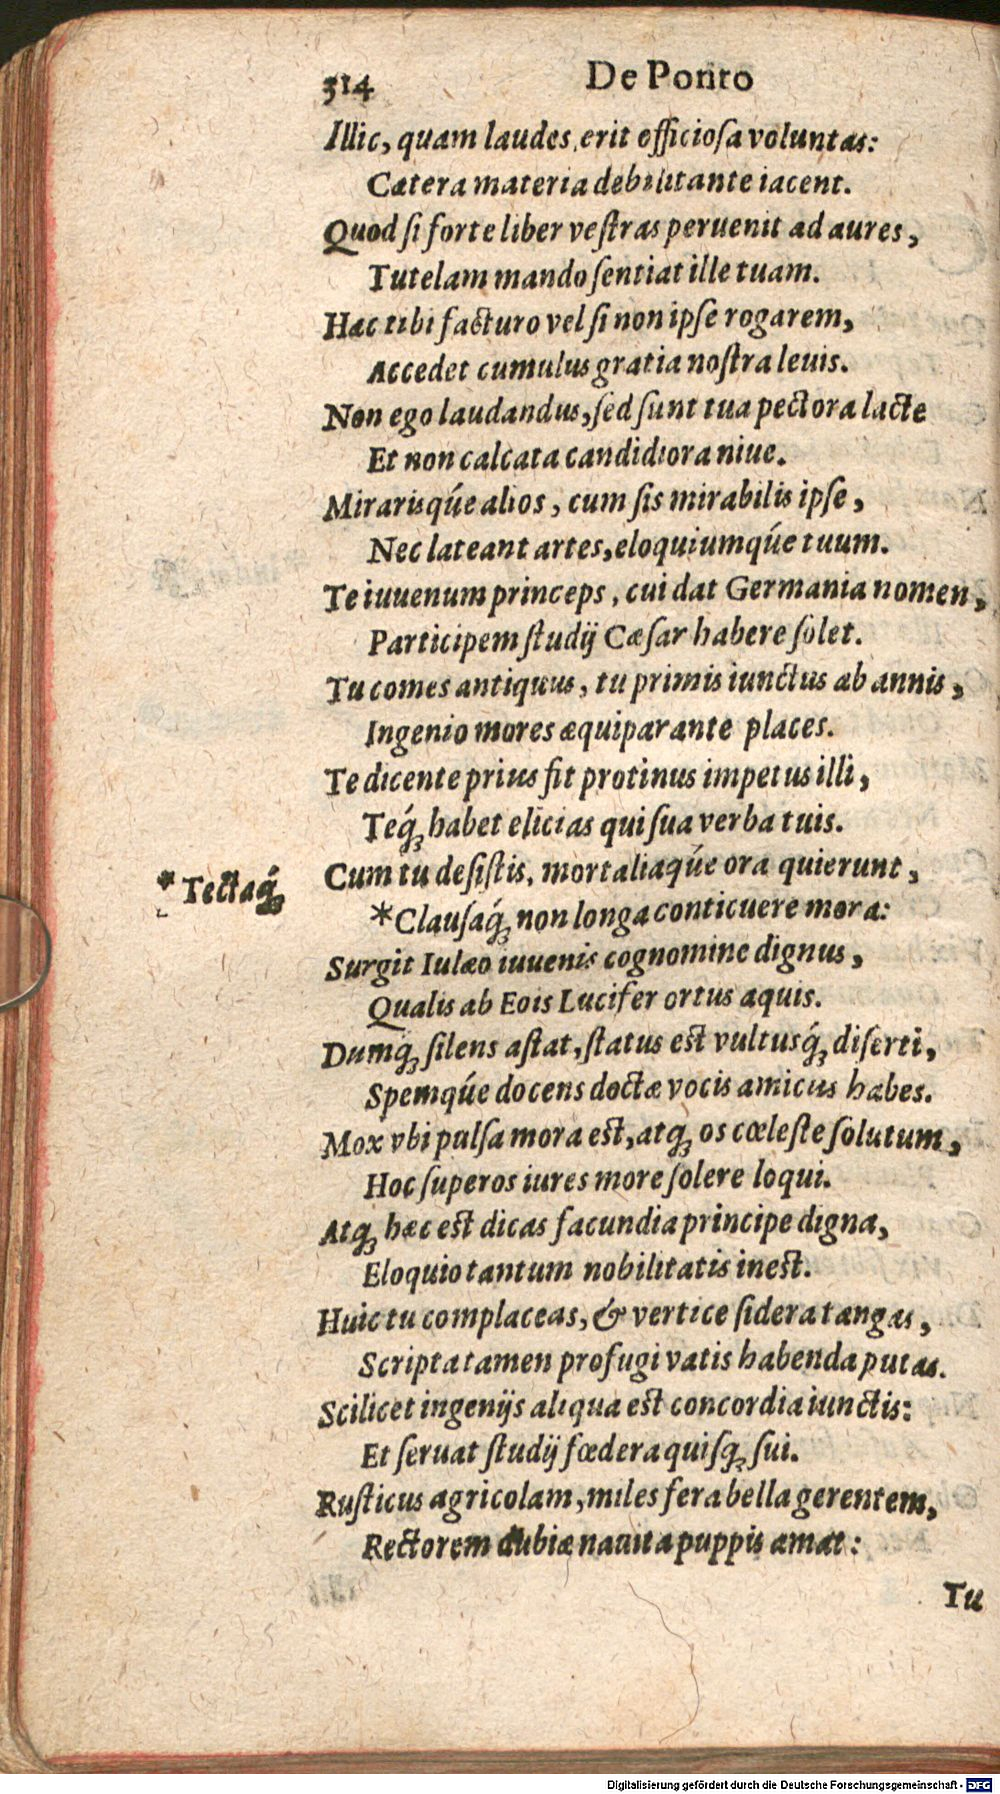 314
De Ponto
Illic, quam laudes, erit officiosa voluntas:
Cætera materia debilitante iacent.
Quod si forte liber vestras peruenit ad aures,
Tutelam mando sentiat ille tuam.
Hæc tibi facturo vel si non ipse rogarem,
Accedet cumulus gratia nostra leuis.
Non ego laudandus, sed sunt tua pectora lacte
Et non calcata candidiora niue.
Mirarisq́ue alios, cum sis mirabilis ipse,
Nec lateant artes, eloquiumq́ue tuum.
Te iuuenum princeps, cui dat Germania nomen,
Participem studij Cæsar habere solet.
Tu comes antiquus, tu primis iunctus ab annis,
Ingenio mores æquiparante places.
Te dicente prius fit protinus impetus illi,
Teq́ꝫ habet elicias qui sua verba tuis.
Cum tu desistis, mortaliaq́ue ora quierunt,
* Tectaq́ꝫ
*Clausaq́ꝫ non longa conticuere mora:
Surgit Iulæo iuuenis cognomine dignus,
Qualis ab Eois Lucifer ortus aquis.
Dumq́ꝫ silens astat, status est vultusq́ꝫ diserti,
Spemq́ue docens doctæ vocis amicus habes.
Mox vbi pulsa mora est, atqꝫ os cœleste solutum,
Hoc superos iures more solere loqui.
Atqꝫ hæc est dicas facundia principe digna,
Eloquio tantum nobilitatis inest.
Huic tu complaceas, & vertice sidera tangas,
Scripta tamen profugi vatis habenda putas.
Scilicet ingenijs aliqua est concordia iunctis:
Et seruat studij fœdera quisqꝫ sui.
Rusticus agricolam, miles fera bella gerentem,
Rectorem dubiæ nauita puppis amat:
Tu
Digitalisierung gefördert durch die Deutsche Forschungsgemeinschaft - DFG